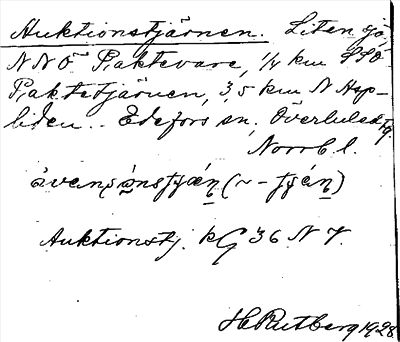 Auktionstjärnen. Liten sjö,
NNÖ Paktevare, 1/4 km SSO
Paktetjärnen, 3,5 km N Asp-
liden.. Edefors sn, Överluleå tg.
Norrb. l.
Auktionstj. kG 36 N 7.
H. Rutberg 1928